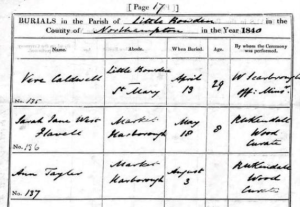 [ Page 17 ]
BURIALS in the Parish of Little Bowden in the
County of Northampton in the Year 1840
Name. Abode. When Buried. Age. By whom the Ceremony was performed.
Vere Caldwell Little Bowden St Mary April 13 29 W Scarbrough Off: Minr.
No. 135
Sarah Jane West Flavell Market Harborough May 18 8 R W Kendall Wood Curate
No. 136
Ann Tayler Market Harborough August 3 R W Kendall Wood Curate
No. 137